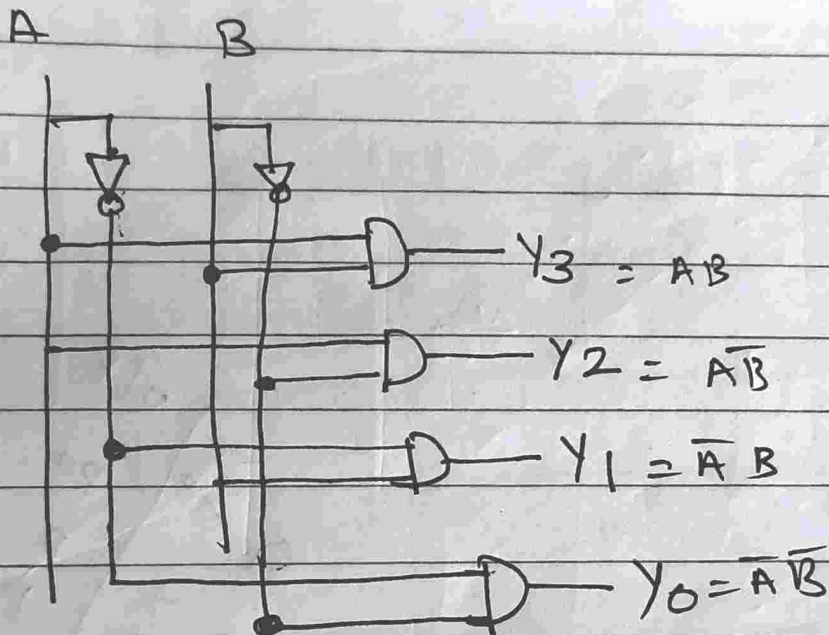 A B
Y3 = AB
Y2 = AB̅
Y1 = A̅ B
Y0 = A̅ B̅